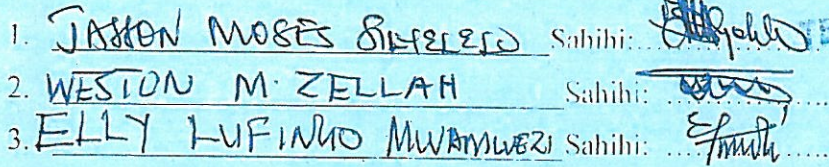 1. JASSON MOSES Sahihi:
2. WESTON M. ZELLAH Sahihi:
3. ELLY LUFINGO MWAMWEZI Sahihi: